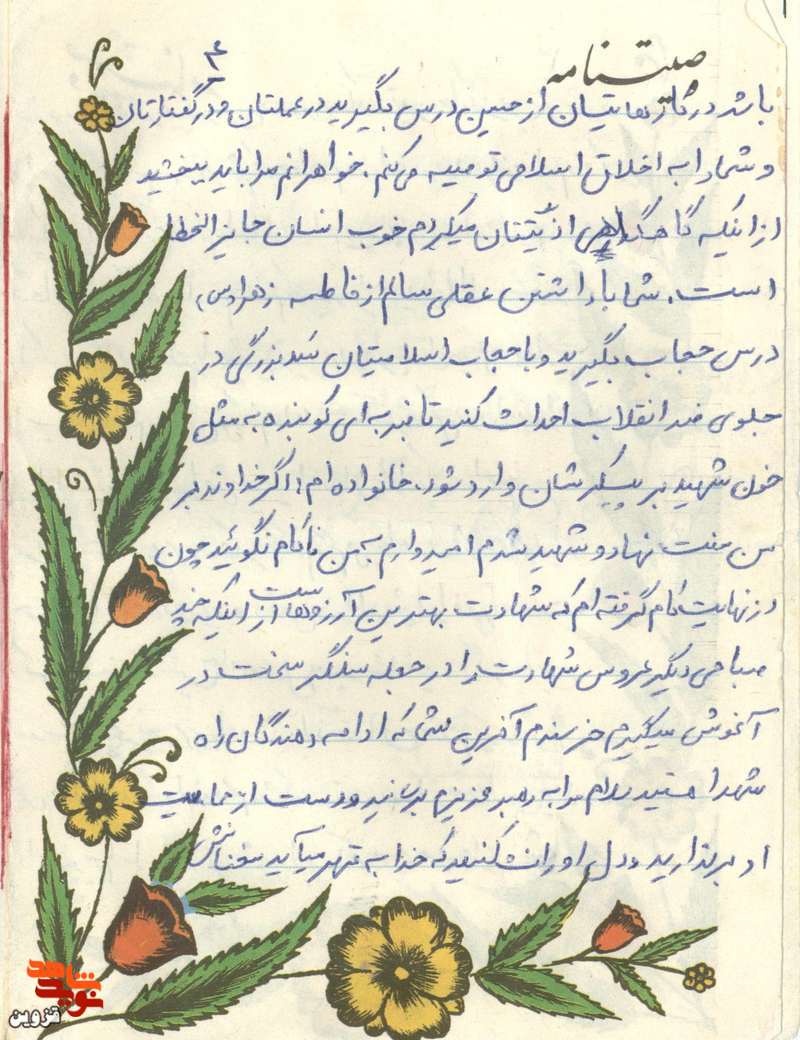 وصیتنامه
۴
باشد در نمازهایتان از حسین درس بگیرید در عملتان و در گفتارتان
و شما را به اخلاق اسلامی توصیه می‌کنم. خواهرانم مرا باید ببخشید
از اینکه گاهگاهی اذیتتان میکردم خوب انسان جایز الخطا
است. شما با داشتن عقلی سالم از فاطمه زهرا (س)
درس حجاب بگیرید و با حجاب اسلامیتان سد بزرگی در
جلوی ضد انقلاب احداث کنید تا ضربه ای کوبنده به مثل
خون شهید بر پیکرشان وارد شود. خانواده ام: اگر خداوند بر
من منت نهاد و شهید شدم امیدوارم به من ناکام نگوئید چون
در نهایت کام گرفته ام که شهادت بهترین آرزوهاست از اینکه چند
صباحی دیگر عروس شهادت را در حجله سنگر سخت در
آغوش میگیرم خرسندم آفرین شما که ادامه دهندگان راه
شهدا هستید سلام مرا به رهبر عزیزم برسانید و دست از حمایت
او بر ندارید و دل او را نشکنید که خدا به قهر میآید سخنانش
نوید شاهد
قزوین